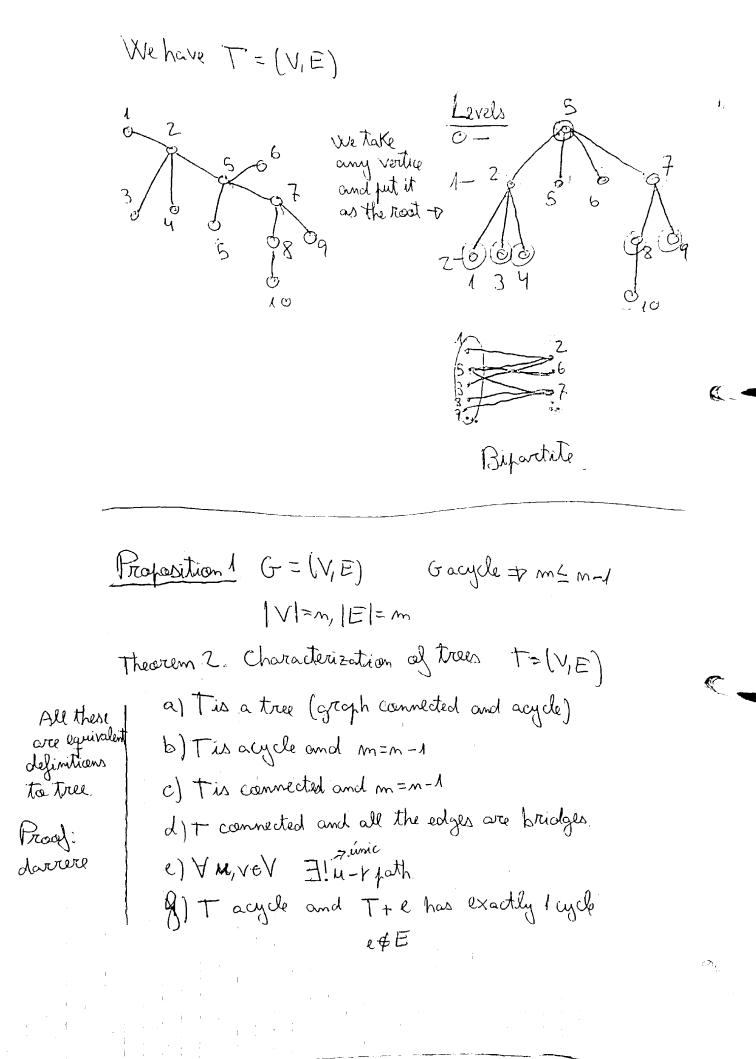 We have T = (V, E)
1
2
3
4
5
6
7
5
8
9
10
We take
any vertice
and put it
as the root →
Levels
0 —
1 —
2 —
5
2
5
6
7
1 3 4
8
9
10
1
5
3
8
9
2
6
7
Bipartite.
Proposition 1 G = (V, E) G acycle ⇒ m ≤ n-1
|V| = n, |E| = m
Theorem 2. Characterization of trees T = (V, E)
All these
are equivalent
definitions
to tree.
Proof:
darrere
a) T is a tree (graph connected and acycle)
b) T is acycle and m = n-1
c) T is connected and m = n-1
d) T connected and all the edges are bridges.
→ únic
e) ∀ u, v ∈ V ∃! u-v path
f) T acycle and T + e has exactly 1 cycle
e ∉ E